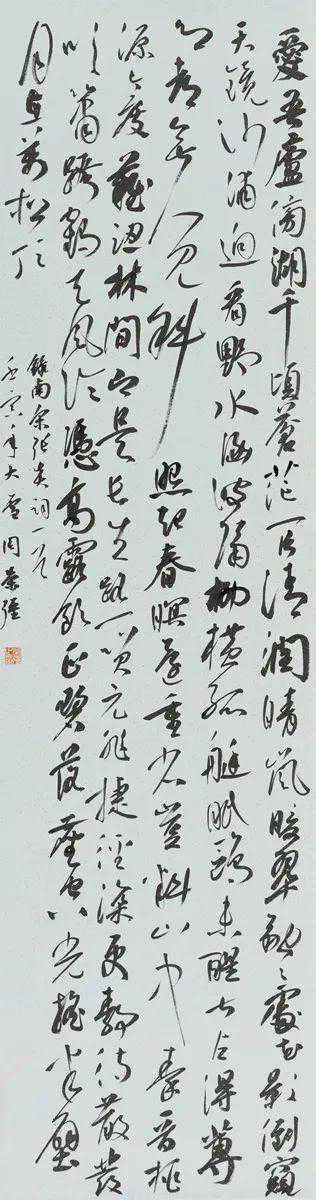 愛吾廬傍湖千頃蒼茫一片清潤晴嵐暖翠融々處花影倒窺
天鏡沙浦迥看野水涵波隔柳橫孤艇眠鷗未醒甚占得蓴
鄉都無人見斜照起春暝還重省豈料山中秦晉桃
源今度難認林間即是長生路一笑元非捷徑深更靜待散髮
吹簫跨鶴天風冷憑高露飲正碧落塵空光搖半壁
月在萬松頂
錄南宋張炎詞一首
壬寅年大雪周榮強